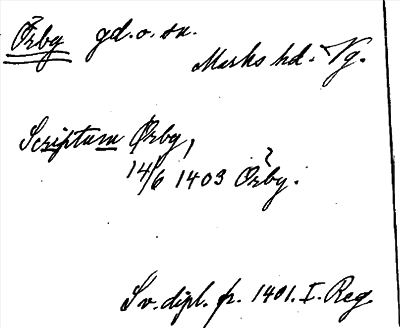 Örby gd. o. sn.
Marks hd. Vg.
Scriptum Ørby,
14/6 1403 Ørby.
Sv. dipl. fr. 1401. I. Reg.